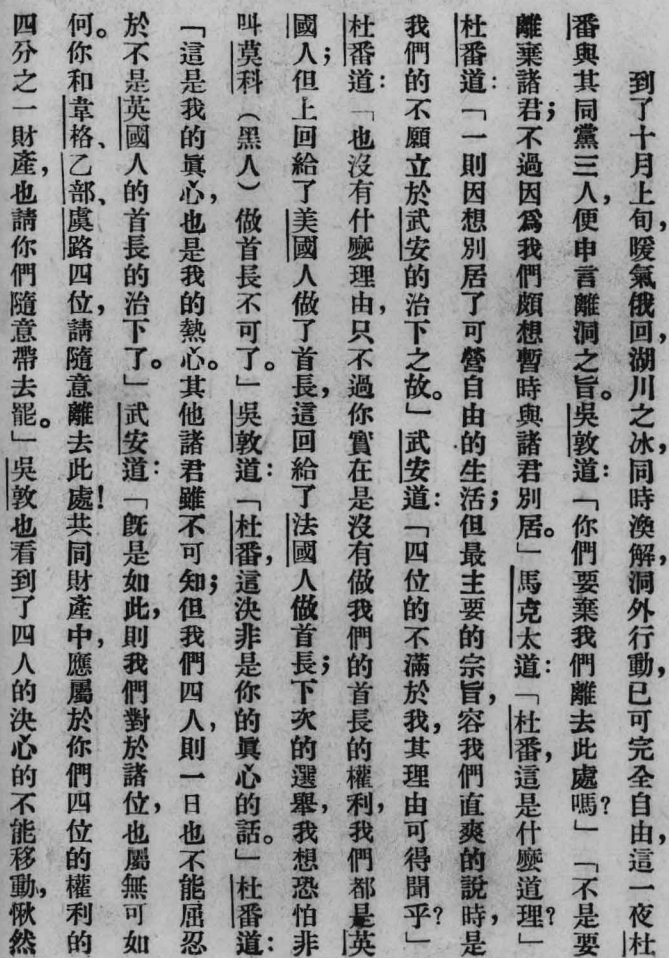 到了十月上旬，暖氣俄回，湖川之冰，同時渙解，洞外行動，已可完全自由，這一夜杜
番與其同黨三人，便申言離洞之旨。吳敦道：「你們要棄我們離去此處嗎？」「不是要
離棄諸君；不過因爲我們頗想暫時與諸君別居。」馬克太道：「杜番，這是什麼道理？」
杜番道：「一則因想別居了可營自由的生活；但最主要的宗旨，容我們直爽的說時，是
我們的不願立於武安的治下之故。」武安道：「四位的不滿於我，其理由可得聞乎？」
杜番道：「也沒有什麼理由，只不過你實在是沒有做我們的首長的權利，我們都是英
國人；但上回給了美國人做了首長，這回給了法國人做首長；下次的選舉，我想恐怕非
叫莫科（黑人）做首長不可了。」吳敦道：「杜番，這決非是你的眞心的話。」杜番道：
「這是我的眞心，也是我的熱心。其他諸君雖不可知；但我們四人，則一日也不能屈忍
於不是英國人的首長的治下了。」武安道：「旣是如此，則我們對於諸位，也屬無可如
何。你和韋格、乙部、虞路四位，請隨意離去此處！共同財產中，應屬於你們四位的權利的
四分之一財產，也請你們隨意帶去罷。」吳敦也看到了四人的決心的不能移動，愀然